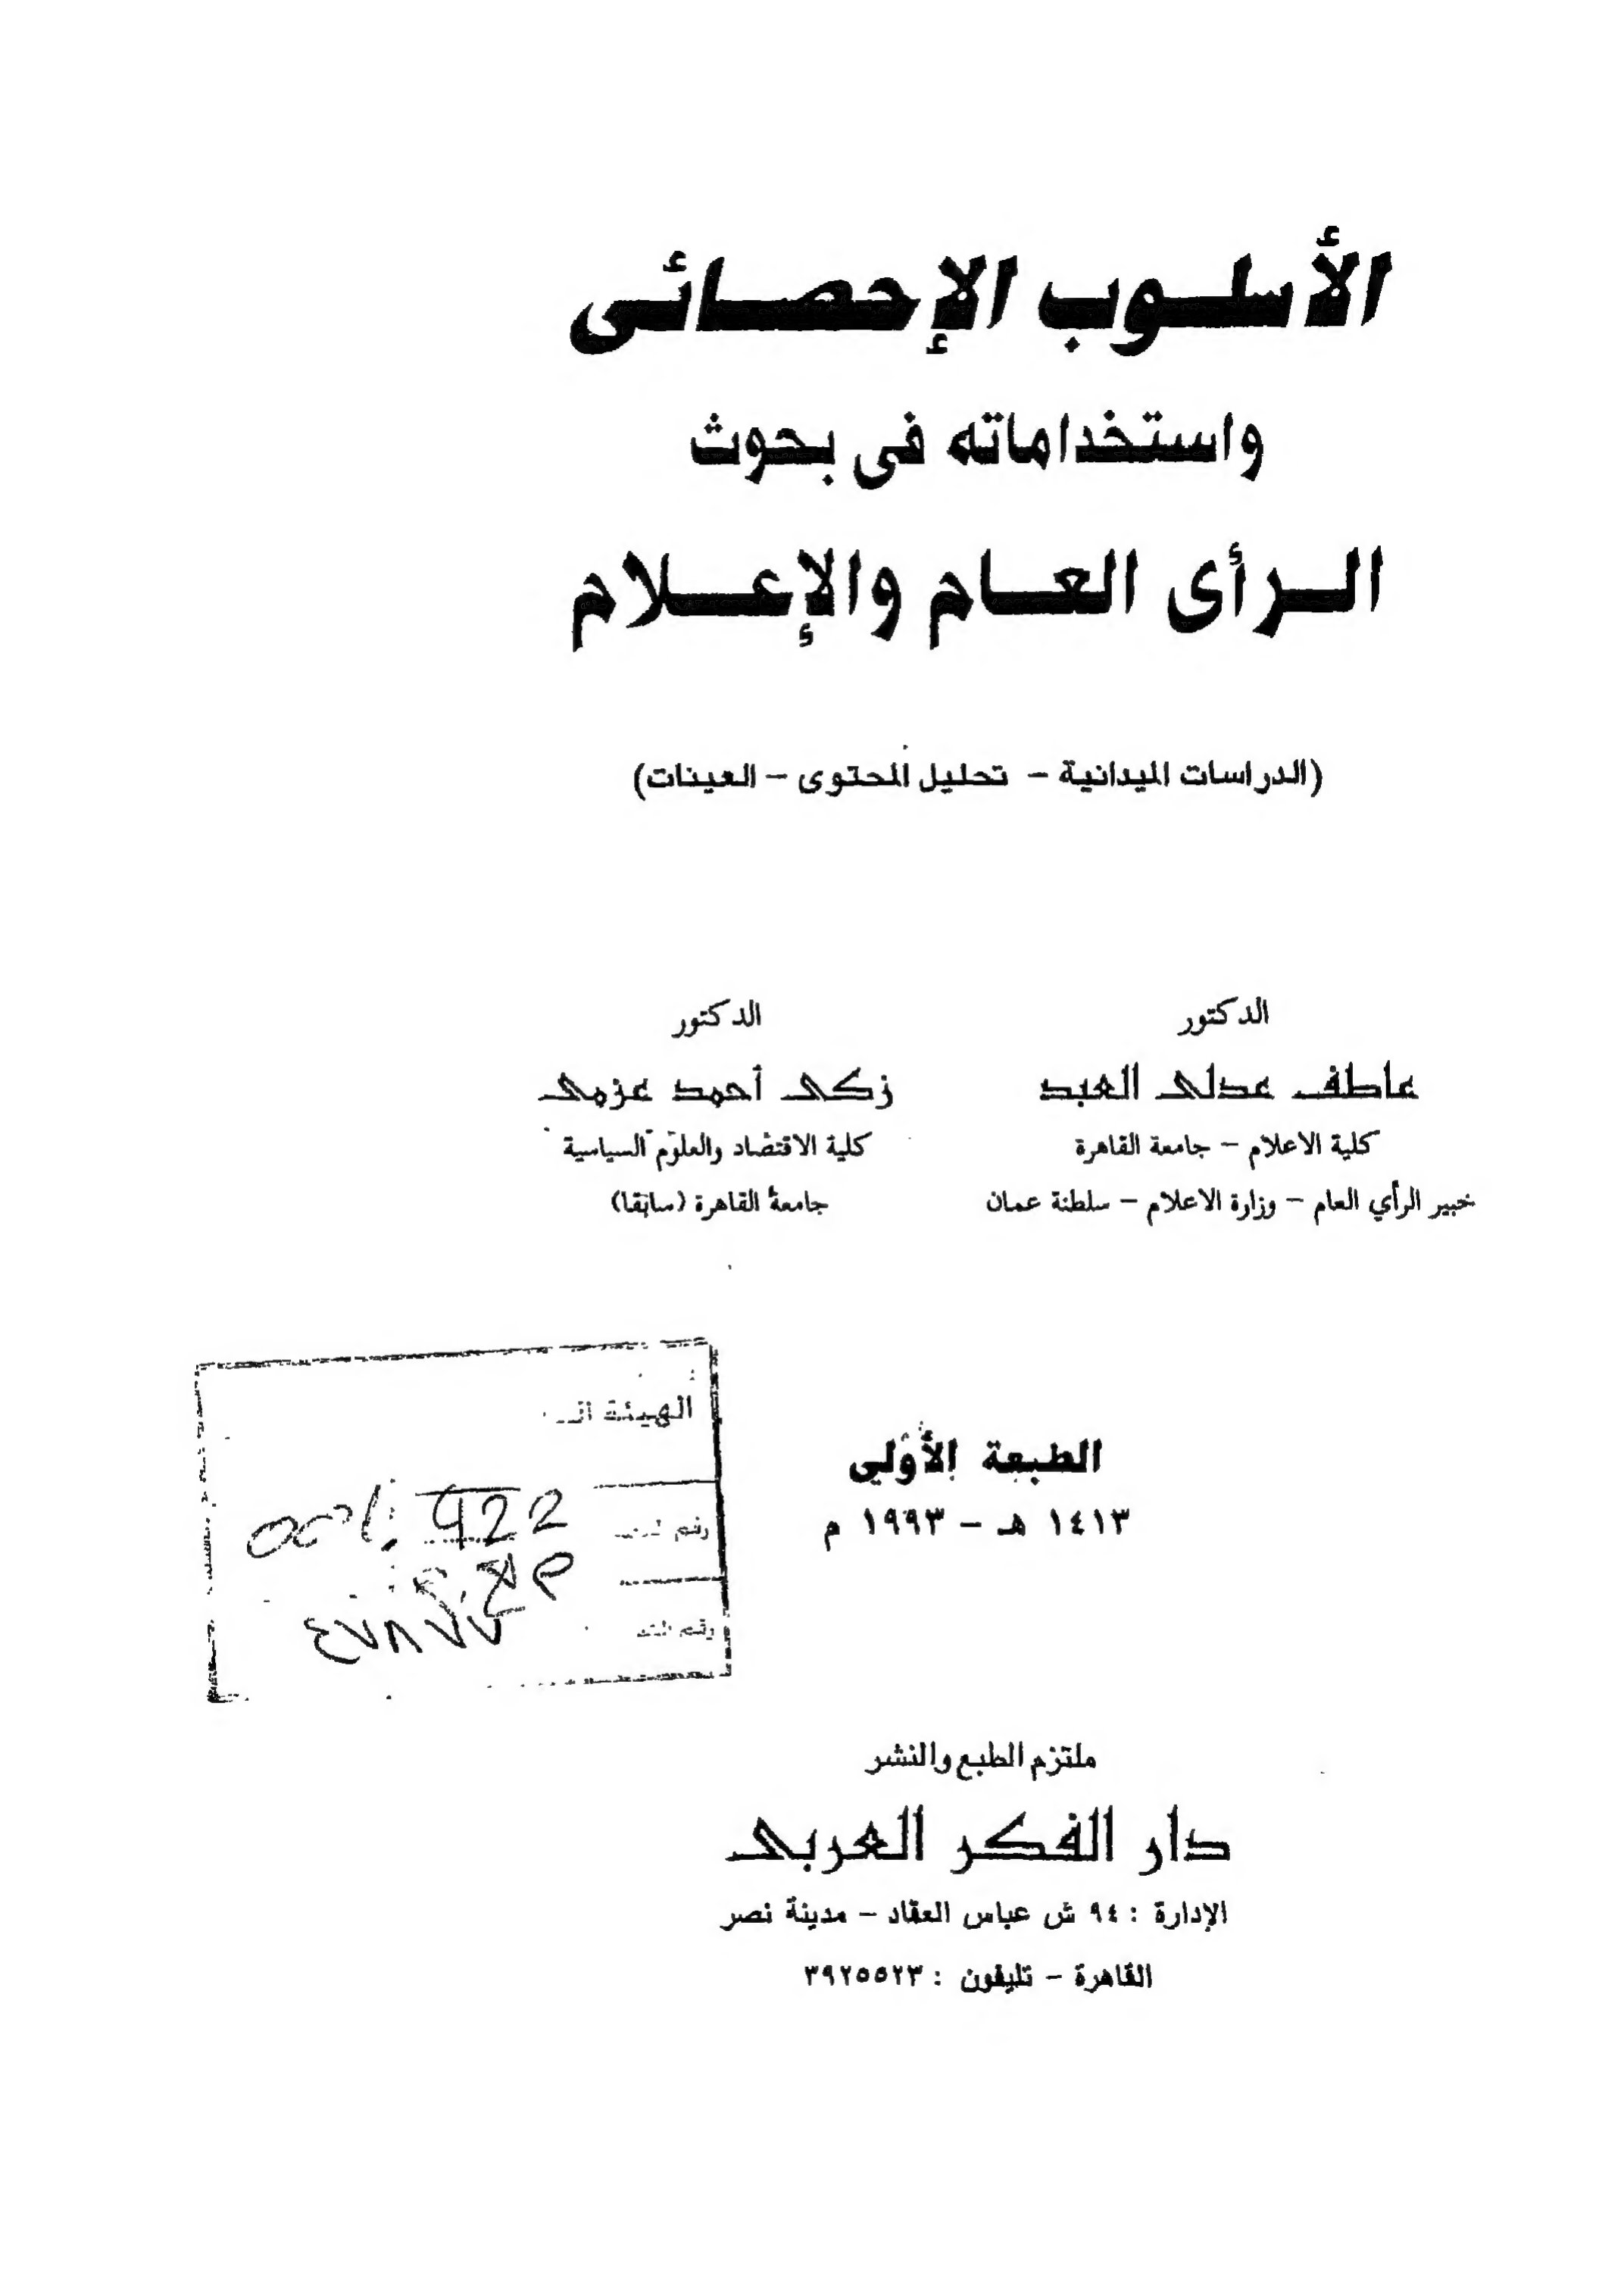 الأسلوب الإحصائى
واستخداماته فى بحوث
الرأى العام والإعلام
(الدراسات الميدانية – تحليل المحتوى – العينات)
الدكتور
عاطف عدلى العبد
كلية الاعلام – جامعة القاهرة
خبير الرأي العام – وزارة الاعلام – سلطنة عمان
الدكتور
زكى أحمد عزمى
كلية الاقتصاد والعلوم السياسية
جامعة القاهرة (سابقا)
الطبعة الأولي
١٤١٣ هـ – ١٩٩٣ م
الهيئة
رقم
رقم
٤٧٨٧٧
ملتزم الطبع والنشر
دار الفكر العربى
الإدارة : ٩٤ ش عباس العقاد – مدينة نصر
القاهرة – تليفون : ٣٩٢٥٥٢٣